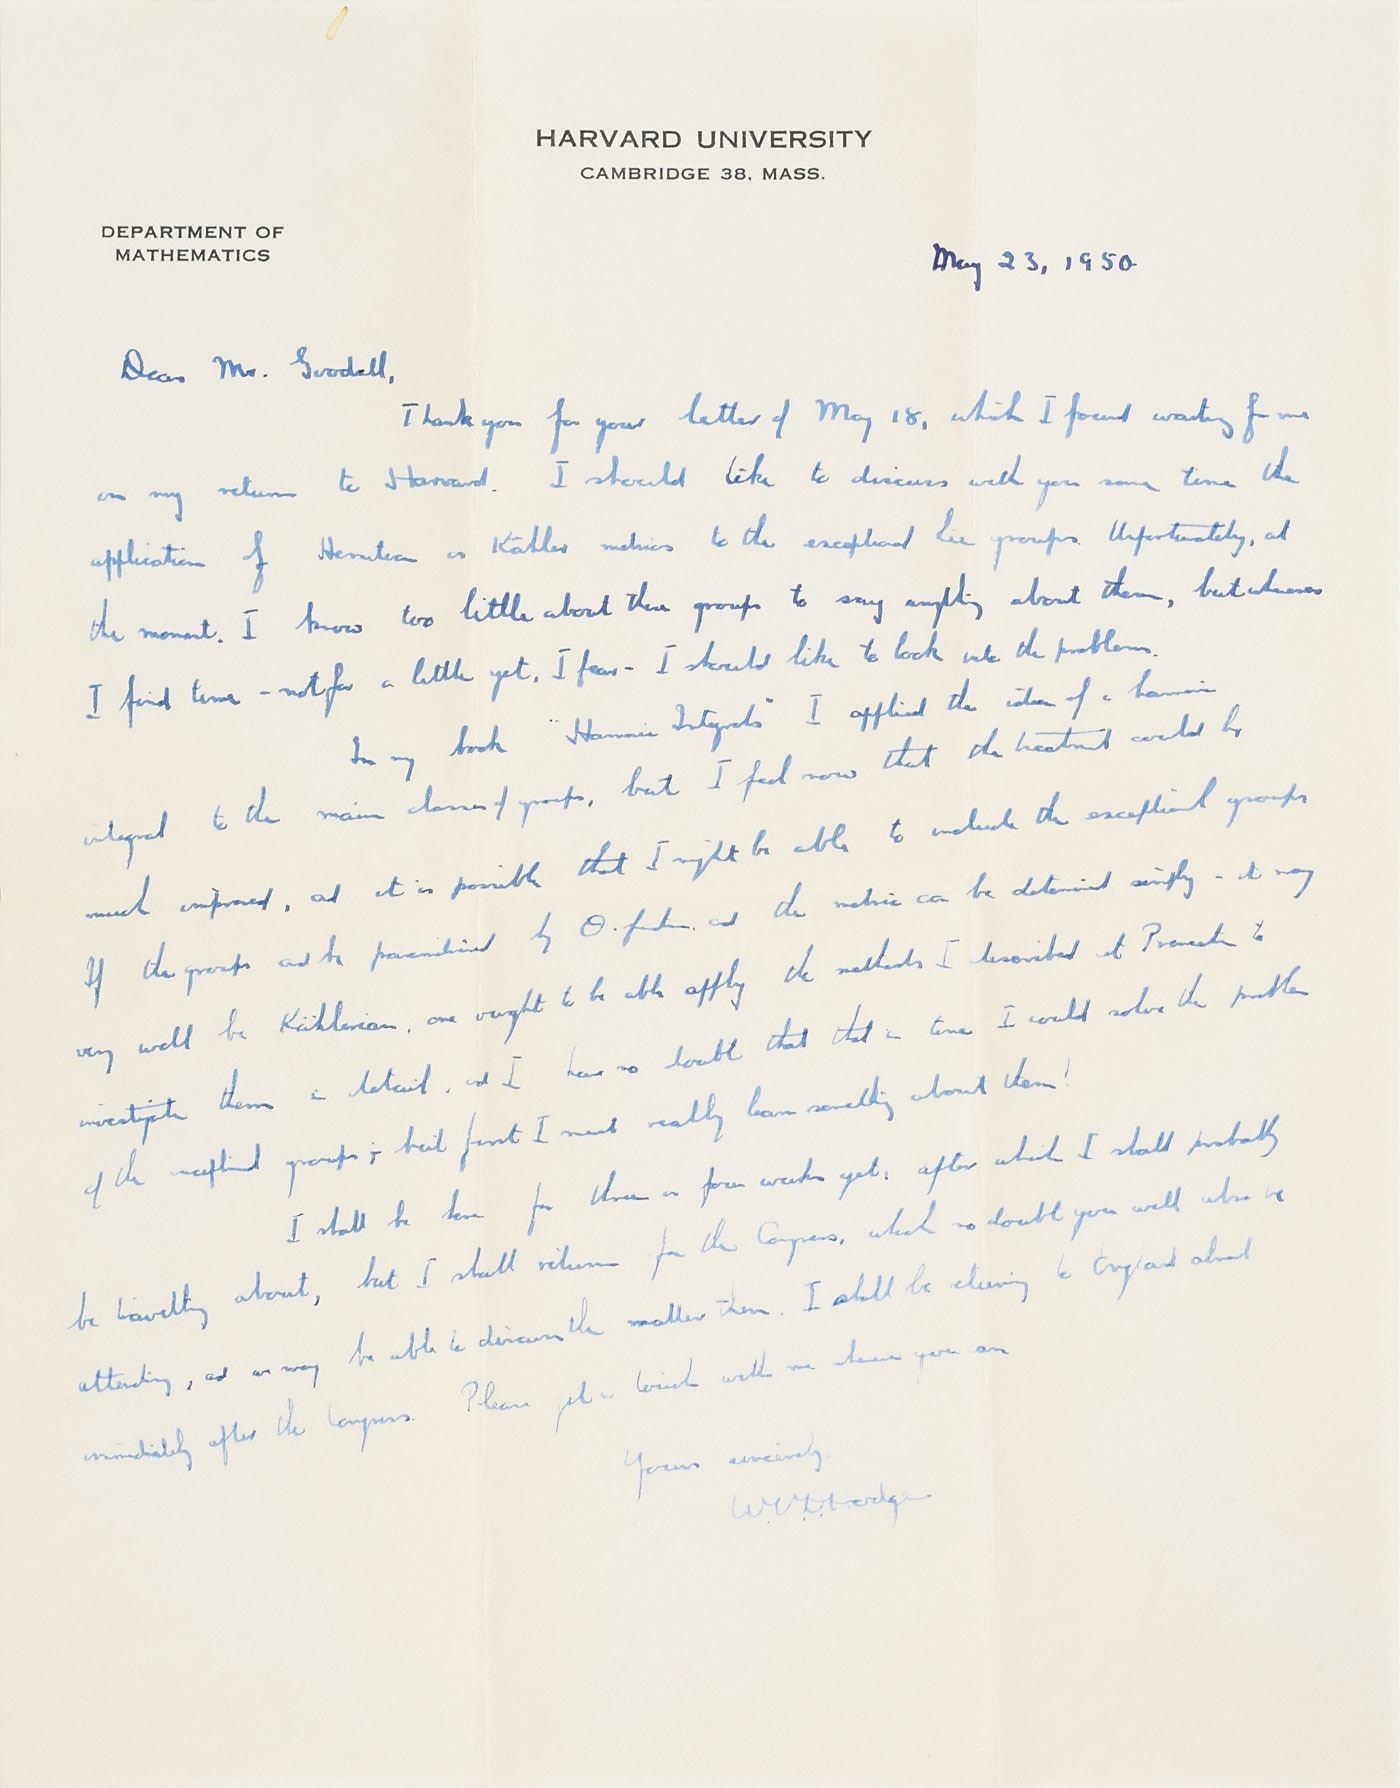 HARVARD UNIVERSITY
CAMBRIDGE 38, MASS.
DEPARTMENT OF
MATHEMATICS
May 23, 1950
Dear Mr. Goodell,
Thank you for your letter of May 18, which I found waiting for me
on my return to Harvard. I should like to discuss with you some time the
application of Hermitean or Kähler metrics to the exceptional Lie groups. Unfortunately, at
the moment. I know too little about these groups to say anything about them, but whenever
I find time - not for a little yet, I fear - I should like to look into the problem.
In my book "Harmonic Integrals" I applied the idea of a harmonic
integral to the main classes of groups, but I feel now that the treatment could be
much improved, and it is possible that I might be able to include the exceptional groups
If the groups can be parametrised by Θ-functions and the metric can be determined simply - it may
very well be Kählerian, one ought to be able apply the methods I described at Princeton to
investigate them in detail, and I have no doubt that that in time I could solve the problem
of the exceptional groups; but first I must really learn something about them!
I shall be here for three or four weeks yet, after which I shall probably
be travelling about, but I shall return for the Congress, which no doubt you will also be
attending, and we may be able to discuss the matter then. I shall be returning to England almost
immediately after the Congress. Please get in touch with me when you are
Yours sincerely.
W.V.D. Hodge